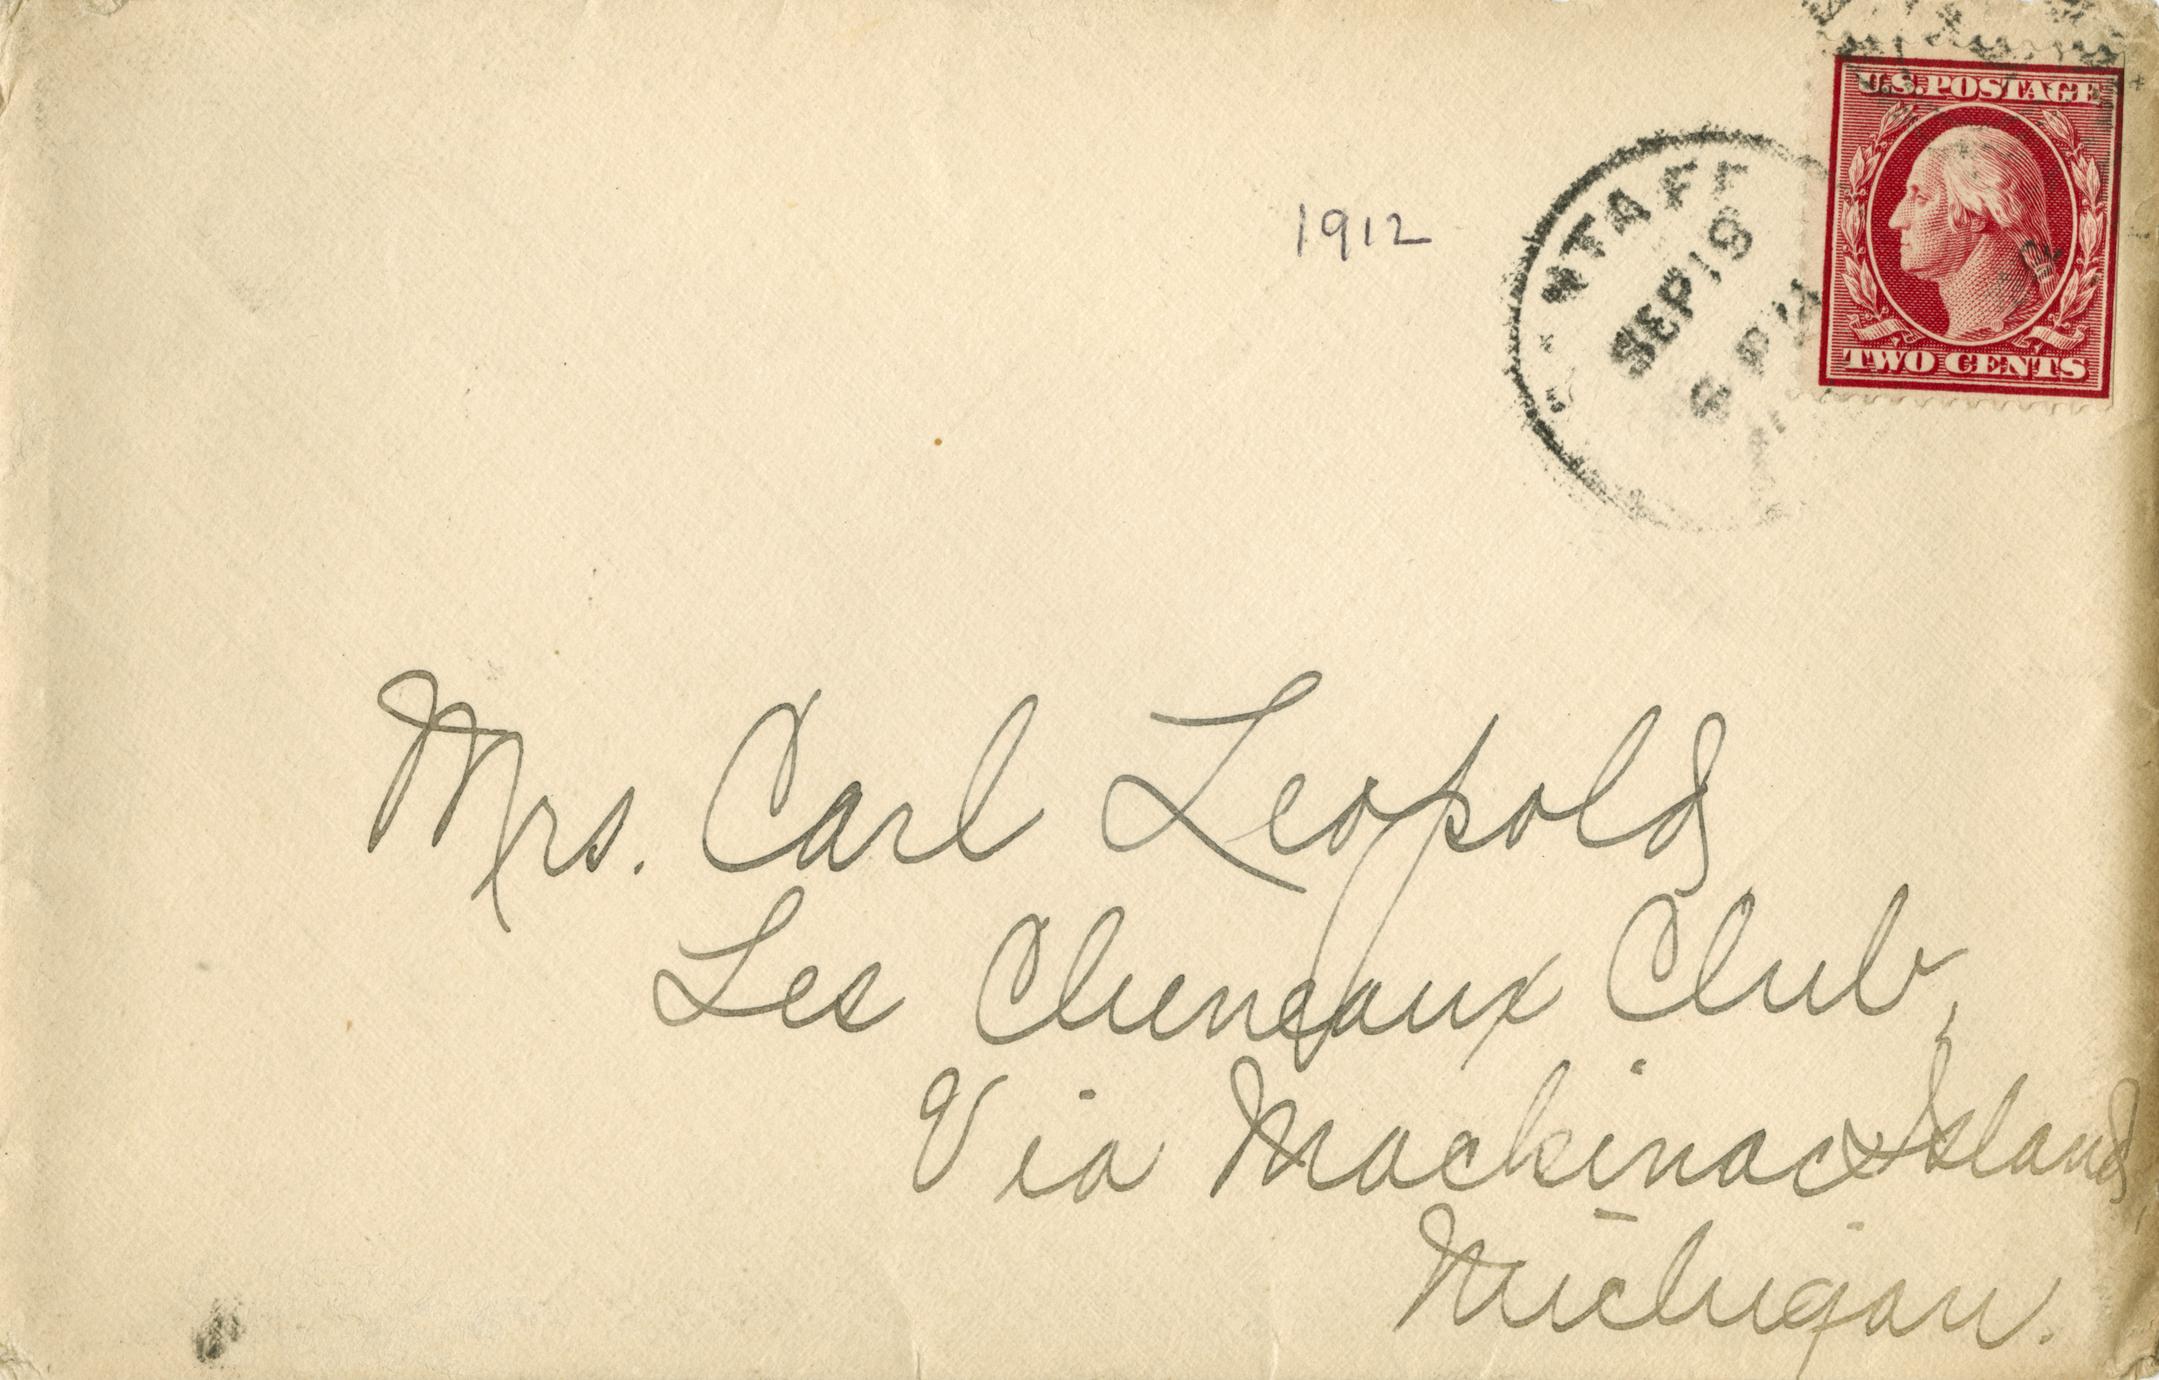 U.S. POSTAGE
NTA FE
SEP 19
1912
TWO CENTS
Mrs. Carl Leopold
Les Cheneaux Club,
Via Mackinac Island,
Michigan.